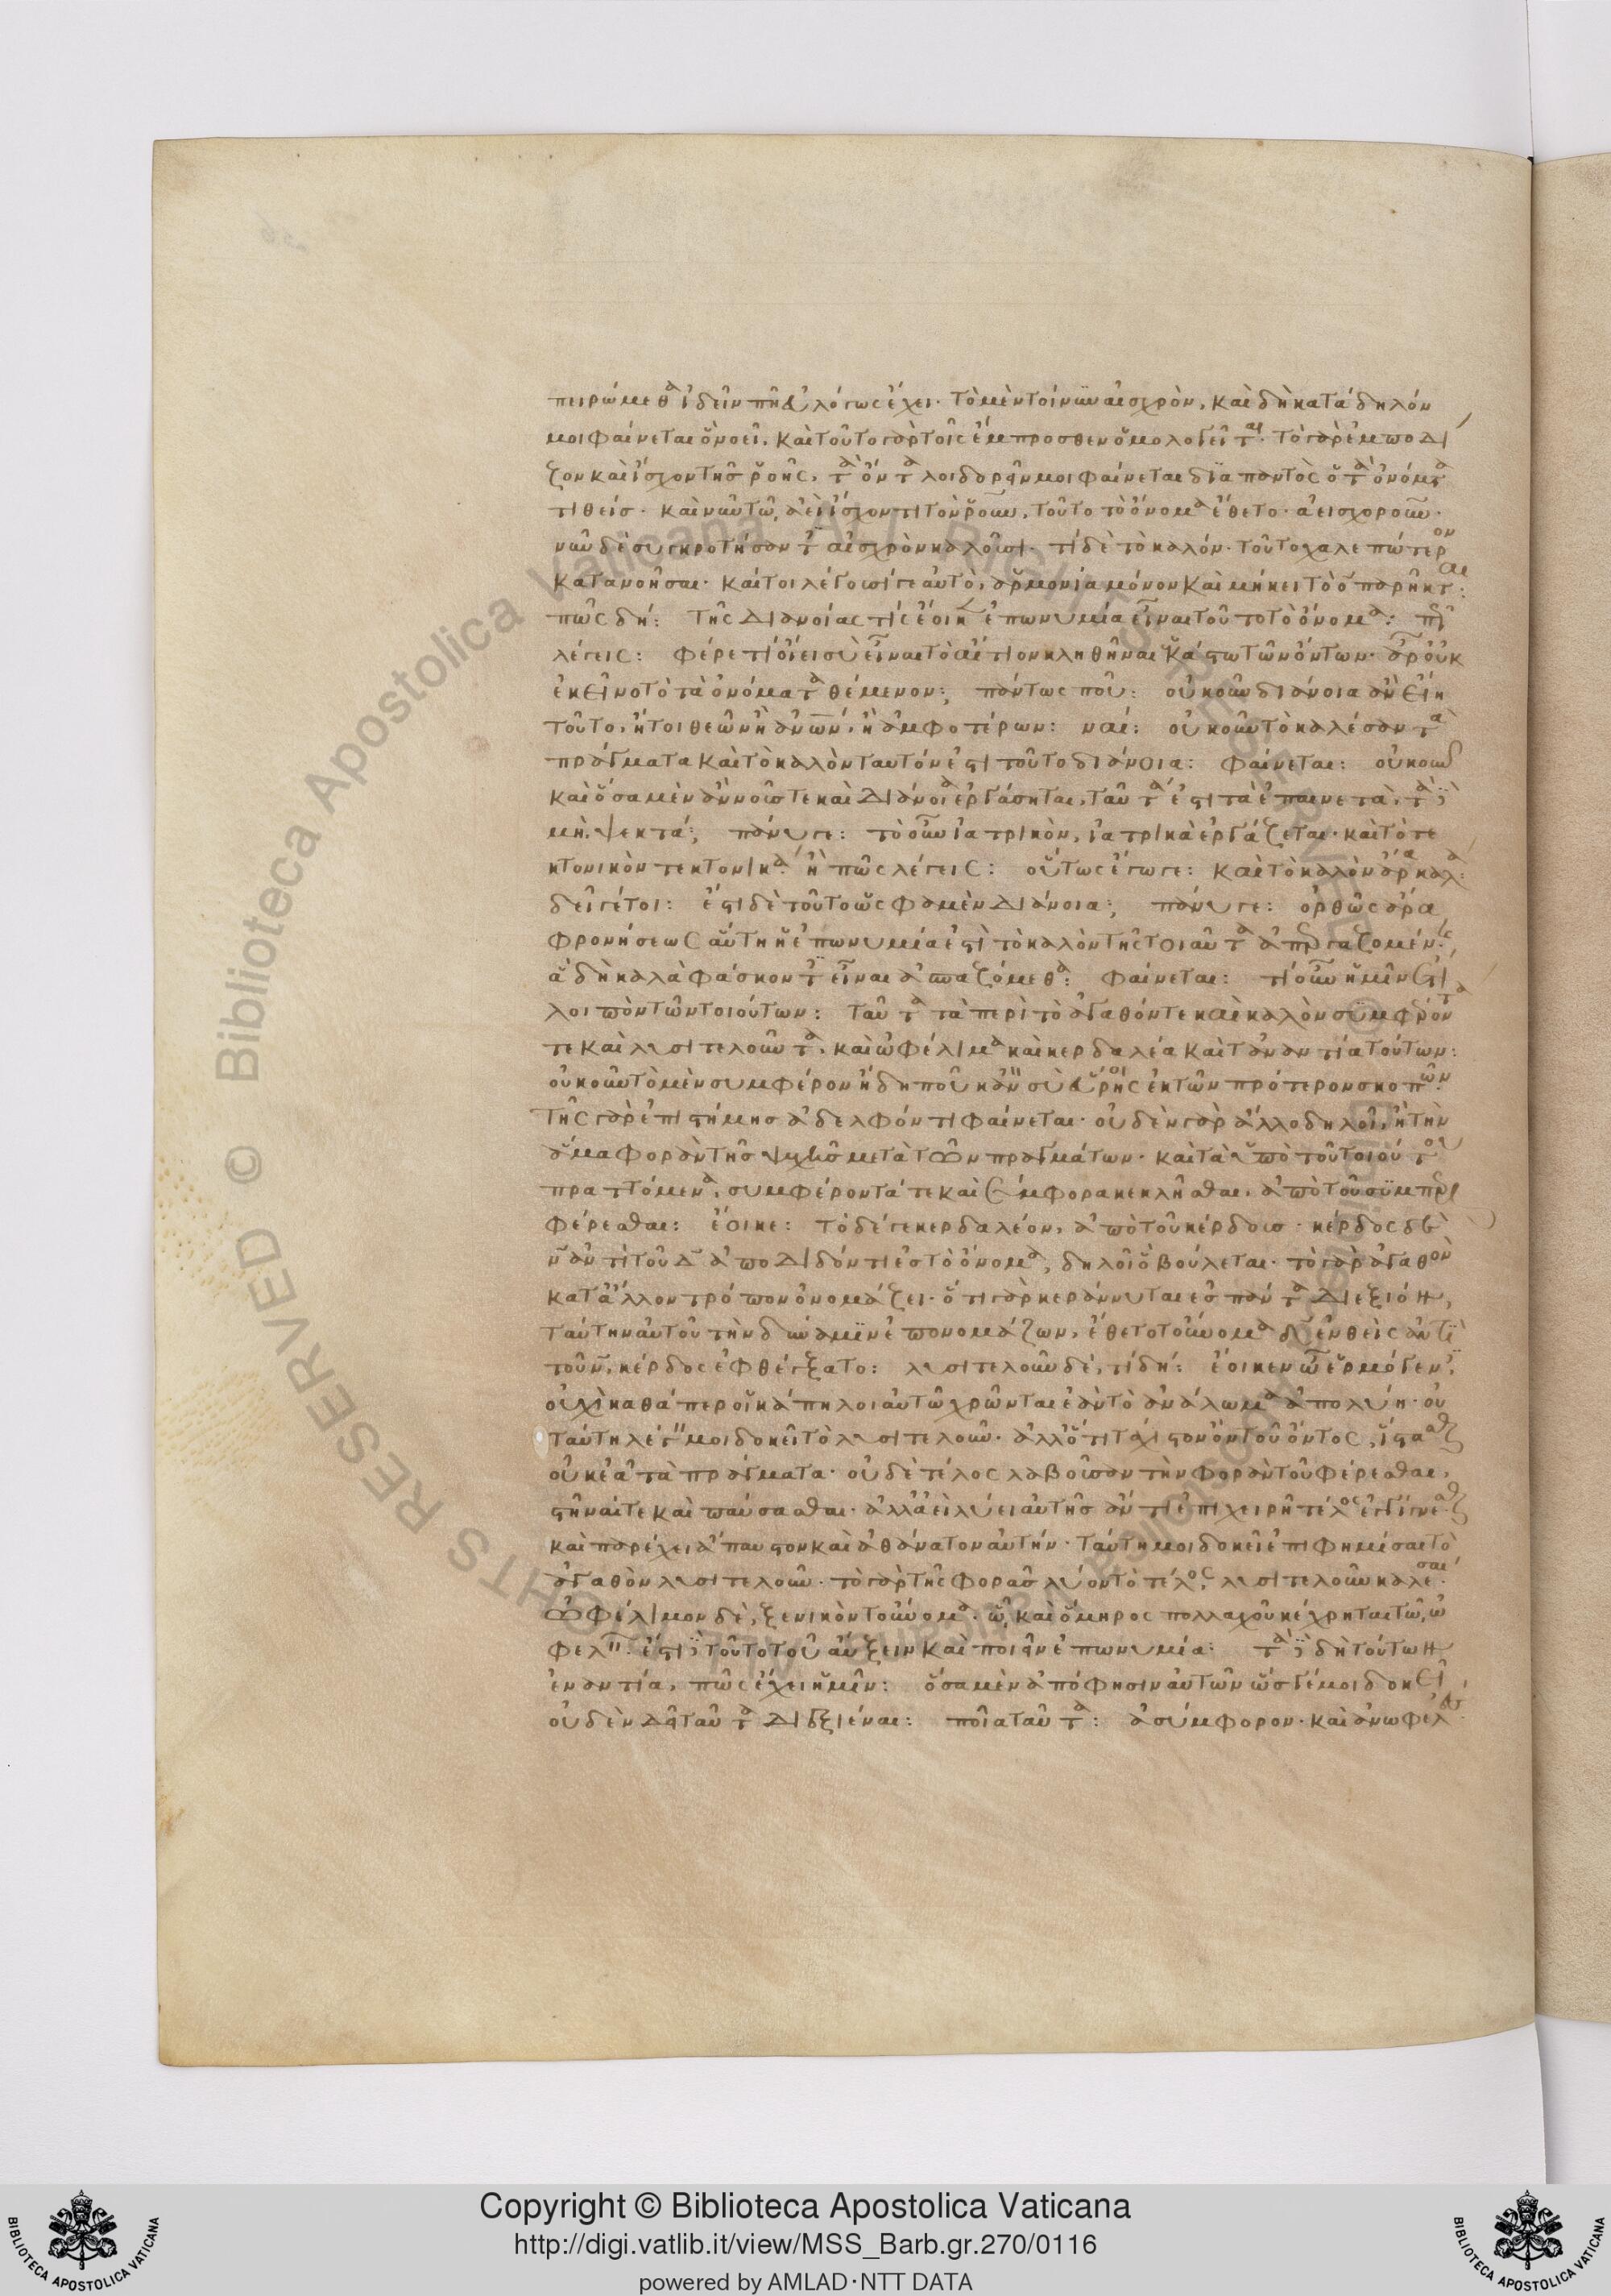 πειρώμεθα ἰδεῖν πῆ εὐλόγως ἔχει· τὸ μὲν τοίνυν αἰσχρὸν, καὶ δὴ κατάδηλόν
μοι φαίνεται ὃ νοεῖ. καὶ τοῦτο γὰρ τοῖς ἔμπροσθεν ὁμολογεῖται· τὸ γὰρ ἐμποδί
ζον καὶ ἴσχον τῆς ῥοῆς, τὰ ὄντα λοιδορεῖν μοι φαίνεται διὰ παντὸς ὁ τὰ ὀνόματα
τιθείς· καὶ νῦν τῶ ἀεὶ ἴσχοντι τὸν ῥοῦν, τοῦτο τὸ ὄνομα ἔθετο· ἀεισχοροῦν·
νῦν δὲ συγκροτήσαντες αἰσχρὸν καλοῦσι· τί δὲ τὸ καλόν· τοῦτο χαλεπώτερον
κατανοῆσαι· καίτοι λέγει γε αὐτὸ, ἁρμονία μόνον καὶ μήκει τὸ ο παρῆκται:
πῶς δή: τῆς διανοίας τίς ἔοικεν ἐπωνυμία εἶναι τοῦτο τὸ ὄνομα: πῶς
λέγεις: φέρε τί οἴει σὺ εἶναι τὸ αἴτιον κληθῆναι ἑκάστω τῶν ὄντων· ἆρ' οὐκ
ἐκεῖνο τὸ τὰ ὀνόματα θέμενον; πάντως που: οὐκοῦν διάνοια ἂν εἴη
τοῦτο, ἤτοι θεῶν ἢ ἀνων, ἢ ἀμφοτέρων: ναί: οὐκοῦν τὸ καλέσαν τὰ
πράγματα καὶ τὸ καλὸν ταυτόν ἐστι τοῦτο διάνοια: φαίνεται: οὐκοῦν
καὶ ὅσα μὲν ἂν νοῦς τε καὶ διάνοια ἐργάσηται, ταῦτά ἐστι τὰ ἐπαινετὰ, τὰ δὲ
μὴ, ψεκτά; πάνυ γε: τὸ οὖν ἰατρικὸν, ἰατρικὰ ἐργάζεται· καὶ τὸ τε
κτονικὸν τεκτονικά· ἢ πῶς λέγεις: οὕτως ἔγωγε: καὶ τὸ καλὸν ἄρα καλά:
δεῖ γέ τοι: ἔστι δὲ τοῦτο ὥς φαμεν διάνοια; πάνυ γε: ὀρθῶς ἄρα
φρονήσεως αὕτη ἡ ἐπωνυμία ἐστὶ τὸ καλὸν τῆς τοιαῦτα ἀπεργαζομένης,
ἃ δὴ καλὰ φάσκοντες εἶναι ἀσπαζόμεθα: φαίνεται: τί οὖν ἡμῖν ἔτι
λοιπὸν τῶν τοιούτων: ταῦτα τὰ περὶ τὸ ἀγαθόν τε καὶ καλὸν συμφέροντά
τε καὶ λυσιτελοῦντα, καὶ ὠφέλιμα καὶ κερδαλέα καὶ τἀναντία τούτων:
οὐκοῦν τὸ μὲν συμφέρον ἤδη που κἂν σὺ εὕροις ἐκ τῶν πρότερον σκοπῶν·
τῆς γὰρ ἐπιστήμης ἀδελφόν τι φαίνεται· οὐδὲν γὰρ ἄλλο δηλοῖ, ἢ τὴν
ἅμα φορὰν τῆς ψυχῆς μετὰ τῶν πραγμάτων· καὶ τὰ ὑπὸ τοῦ τοιούτου
πραττόμενα, συμφέροντά τε καὶ σύμφορα κεκλῆσθαι, ἀπὸ τοῦ συμπερι
φέρεσθαι: ἔοικε: τὸ δέ γε κερδαλέον, ἀπὸ τοῦ κέρδους· κέρδος δὲ
ν ἀντὶ τοῦ δ ἀποδιδόντι ἐς τὸ ὄνομα, δηλοῖ ὃ βούλεται· τὸ γὰρ ἀγαθὸν
κατ' ἄλλον τρόπον ὀνομάζει· ὅτι γὰρ κεράννυται ἐς πάντα διεξιόν,
ταύτην αὐτοῦ τὴν δύναμιν ἐπονομάζων, ἔθετο τοὔνομα δ ἐνθεὶς ἀντὶ
τοῦ ν, κέρδος ἐφθέγξατο: λυσιτελοῦν δὲ, τί δή: ἔοικεν ὦ ἑρμόγενες,
οὐχὶ καθάπερ οἱ κάπηλοι αὐτῶ χρῶνται ἐὰν τὸ ἀνάλωμα ἀπολύη· οὐ
ταύτη λέγειν μοι δοκεῖ τὸ λυσιτελοῦν· ἀλλ' ὅτι τάχιστον ὂν τοῦ ὄντος, ἵστασθαι
οὐκ ἐᾶ τὰ πράγματα· οὐδὲ τέλος λαβοῦσαν τὴν φορὰν τοῦ φέρεσθαι,
στῆναί τε καὶ παύσασθαι· ἀλλ' ἀεὶ λύει αὐτῆς ἄν τι ἐπιχειρῆ τέλος ἐγγίγνεσθαι·
καὶ παρέχει ἄπαυστον καὶ ἀθάνατον αὐτήν· ταύτη μοι δοκεῖ ἐπιφημίσαι τὸ
ἀγαθὸν λυσιτελοῦν· τὸ γὰρ τῆς φορᾶς λύον τὸ τέλος, λυσιτελοῦν καλέσαι·
ὠφέλιμον δὲ, ξενικὸν τοὔνομα· ὧ καὶ ὅμηρος πολλαχοῦ κέχρηται τῶ, ὠ
φελεῖν· ἔστι δὲ τοῦτο τοῦ αὔξειν καὶ ποιεῖν ἐπωνυμία: τὰ δὲ δὴ τούτων
ἐναντία, πῶς ἔχει ἡμῖν: ὅσα μὲν ἀπόφησιν αὐτῶν ὥς γέ μοι δοκεῖ
οὐδὲν δεῖ ταῦτα διεξιέναι: ποῖα ταῦτα: ἀσύμφορον· καὶ ἀνωφελὲς·
Copyright © Biblioteca Apostolica Vaticana
http://digi.vatlib.it/view/MSS_Barb.gr.270/0116
powered by AMLAD·NTT DATA
BIBLIOTECA APOSTOLICA VATICANA
BIBLIOTECA APOSTOLICA VATICANA